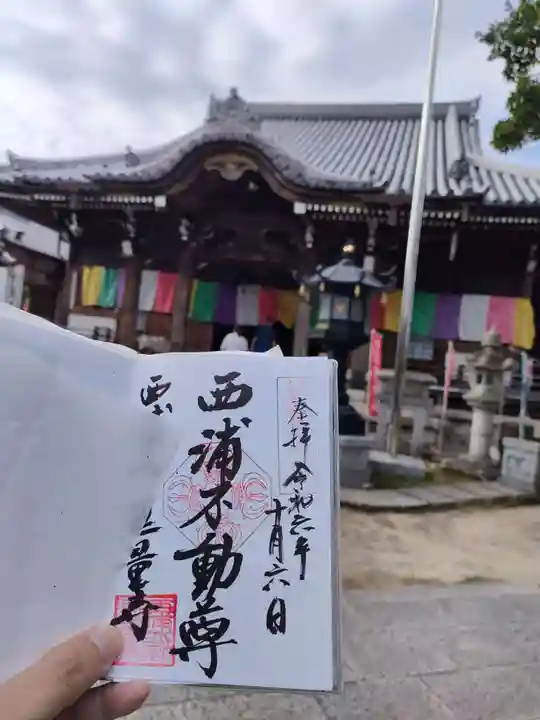 奉拝 令和六年
十月六日
西浦不動尊
西浦
無量寺